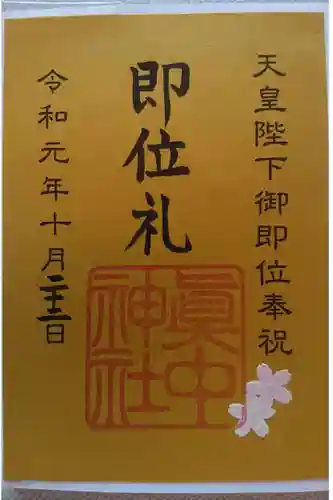 天皇陛下御即位奉祝
即位礼
眞中神社
令和元年十月二十二日